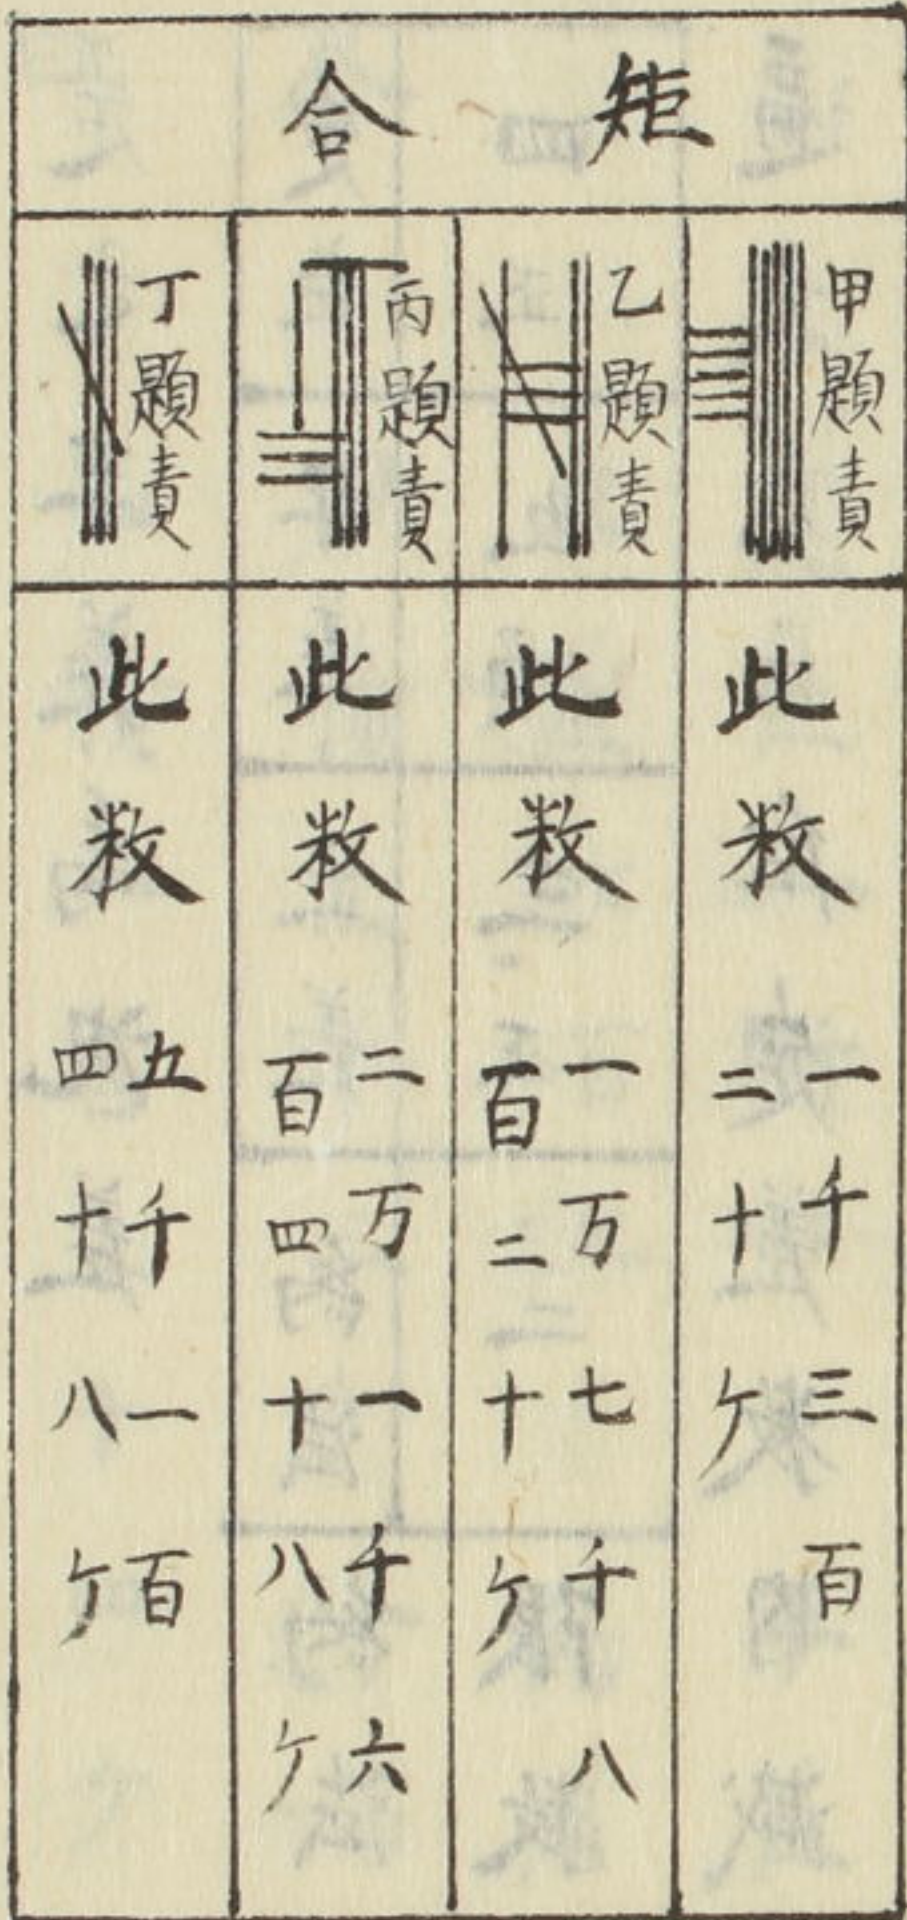 矩合
甲題責
此数
一千三百
二十ケ
乙題責
此数
一万七千八
百二十ケ
丙題責
此数
二万一千六
百四十八ケ
丁題責
此数
五千一百
四十八ケ